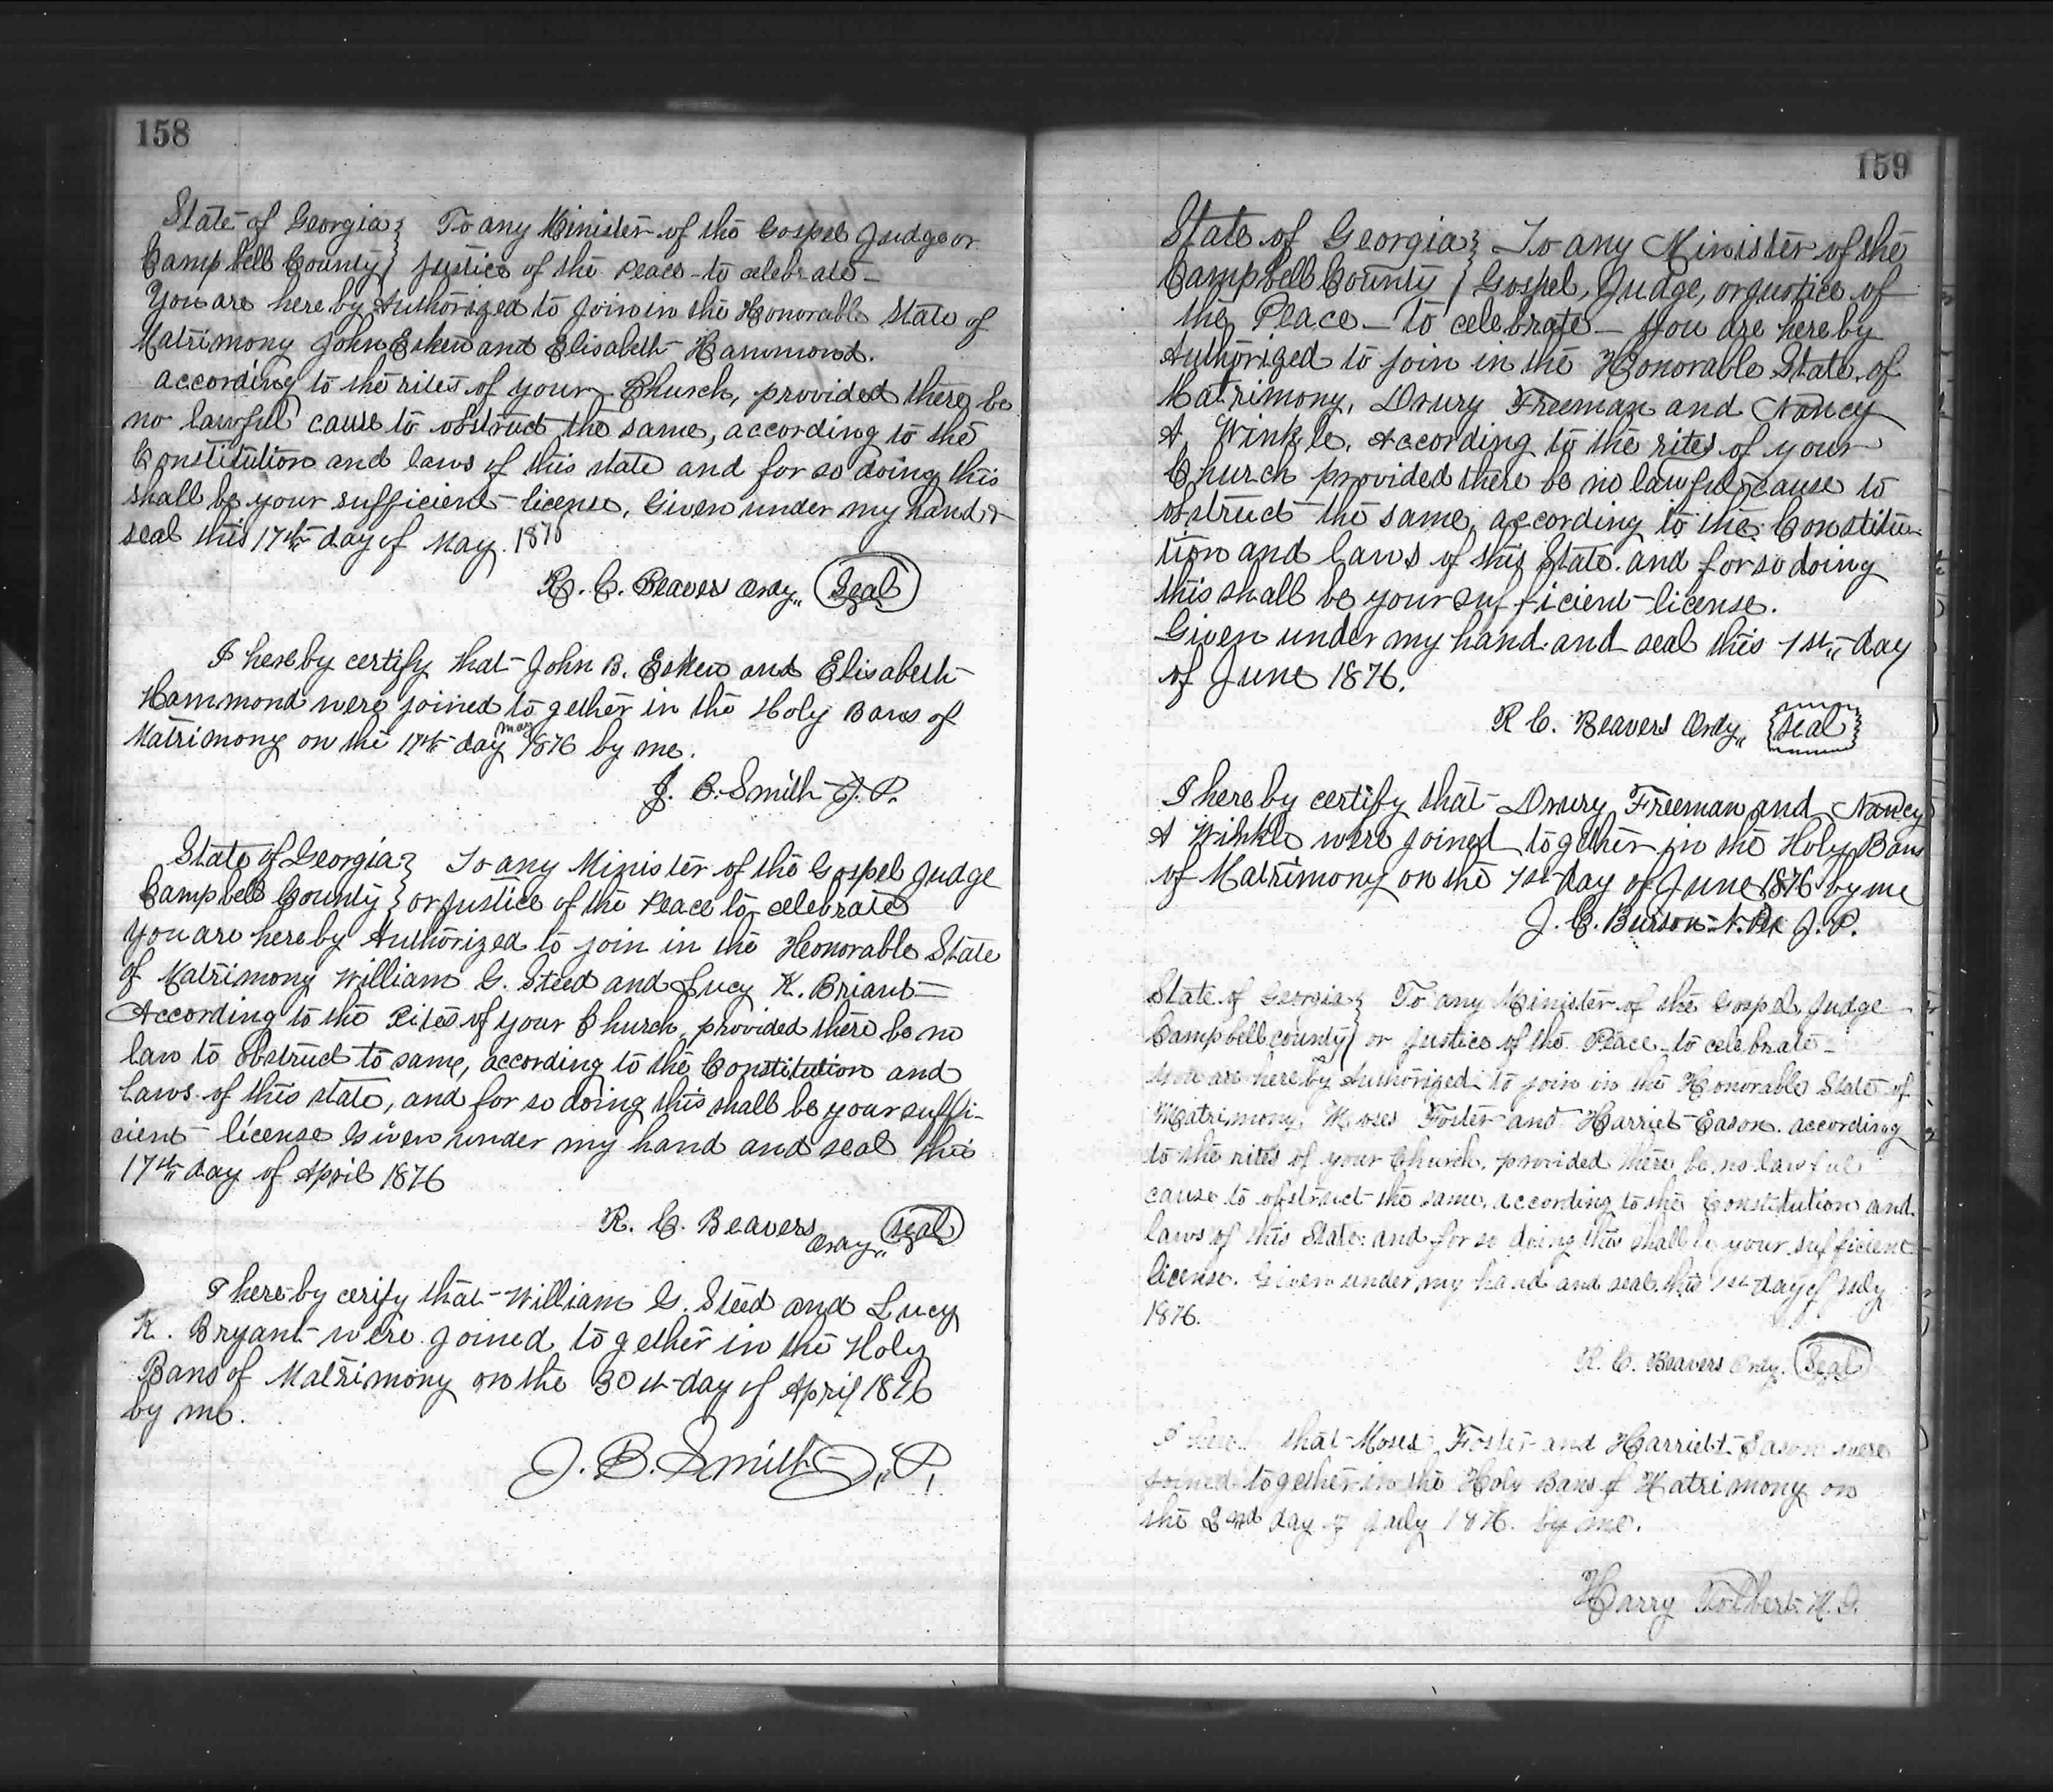 158
State of Georgia } To any Minister of the Gospel Judge or
Campbell County } Justice of the Peace to celebrate
You are hereby Authorized to join in the Honorable State of
Matrimony John Esken and Elisabeth Hammond.
according to the rites of your Church, provided there be
no lawful cause to obstruct the same, according to the
Constitution and laws of this state and for so doing this
shall be your sufficient license, Given under my hand &
seal this 17th day of May 1876
R. C. Beavers Ordy,, Seal
I hereby certify that John B. Esken and Elisabeth
Hammond were joined together in the Holy Bans of
Matrimony on the 17th day May 1876 by me.
J. B. Smith J. P.
State of Georgia } To any Minister of the Gospel Judge
Campbell County } or Justice of the Peace to celebrate
You are hereby Authorized to join in the Heonorable State
of Matrimony William G. Steed and Lucy K. Briant
According to the Rites of your Church, provided there be no
law to obstruct to same, according to the Constitution and
laws of this state, and for so doing this shall be your suffi-
cient license Given under my hand and seal this
17th day of April 1876
R. C. Beavers Ordy,, Seal
I hereby cerify that William G. Steed and Lucy
K. Bryant were joined together in the Holy
Bans of Matrimony on the 30th day of April 1876
by me.
J. B. Smith J. P.
159
State of Georgia } To any Minister of the
Campbell County } Gospel, Judge, or justice of
the Peace — to celebrate — You are hereby
Authorized to join in the Honorable State of
Matrimony, Drury Freeman and Nancy
A Winkle. According to the rites of your
Church provided there be no lawful cause to
obstruct the same, according to the Constitu-
tion and laws of this State. and for so doing
this shall be your sufficient license.
Given under my hand and seal this 1st,, day
of June 1876.
R C. Beavers Ordy,, seal
I hereby certify that Drury Freeman and Nancy
A Winkle were joined together in the Holy Bans
of Matrimony on the 1st day of June 1876 by me
J. C. Burson N. P. Ex J. P.
State of Georgia } To any Minister of the Gospel, Judge
Campbell county } or Justice of the Peace to celebrate —
You are hereby Authorized to join in the Honorable State of
Matrimony, Moses Foster and Harriet Eason. according
to the rites of your Church, provided there be no lawful
cause to obstruct the same, according to the Constitution and
laws of this State: and for so doing this shall be your sufficient
license. Given under my hand and seal this 1st day of July
1876.
R. C. Beavers Ordy. Seal
I that Moses Foster and Harriet Eason were
joined together in the Holy Bans of Matrimony on
the 2nd day of July 1876. by me.
Harry Tolbert M. G.